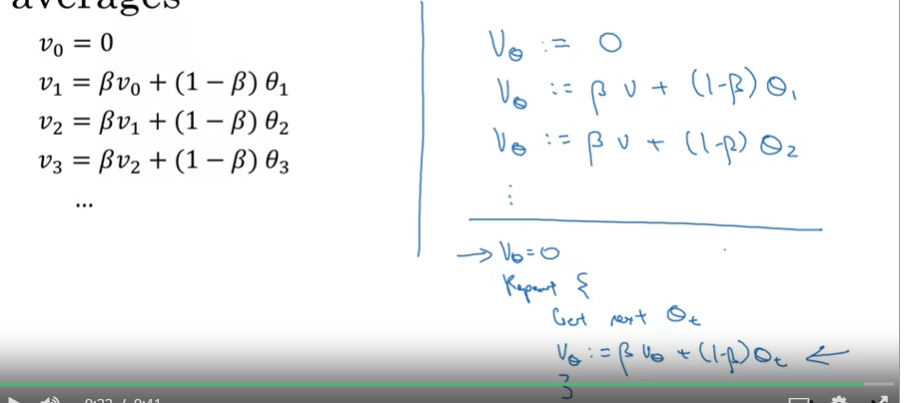 averages
v₀ = 0
v₁ = βv₀ + (1 − β) θ₁
v₂ = βv₁ + (1 − β) θ₂
v₃ = βv₂ + (1 − β) θ₃
...
V_θ := 0
V_θ := β v + (1-β) θ₁
V_θ := β v + (1-β) θ₂
⋮
→ V_θ = 0
Repeat {
Get next θ_t
V_θ := β V_θ + (1-β) θ_t ←
}